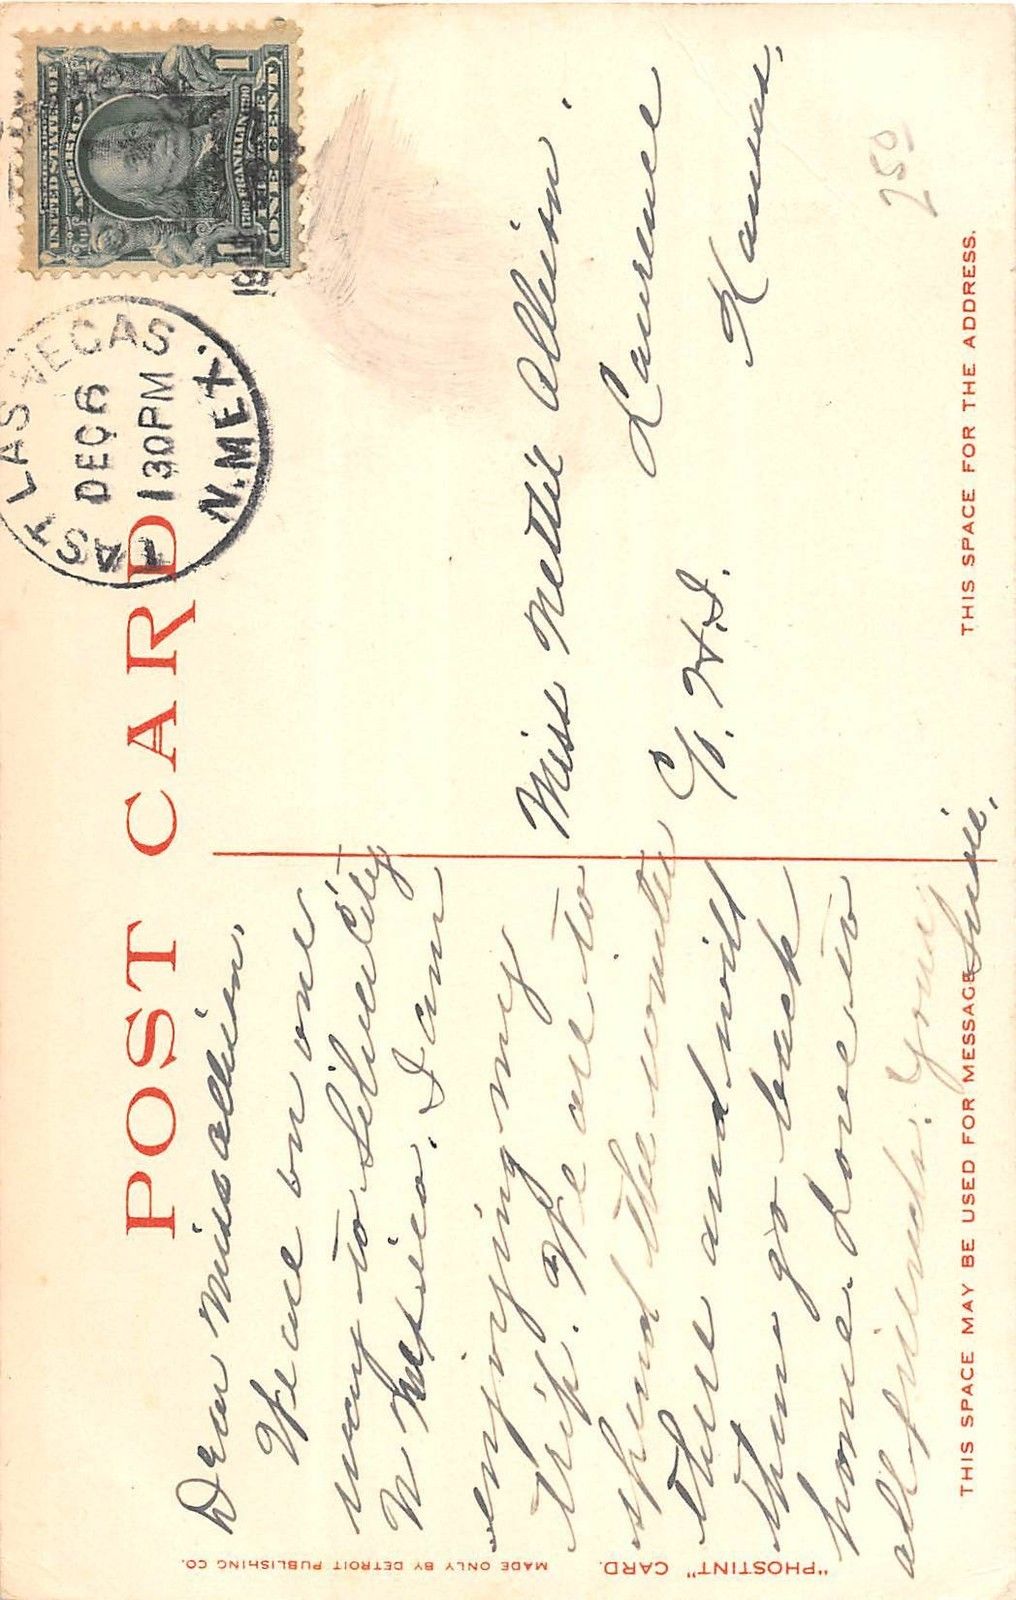 POST CARD
Dear Miss Allison,
We are on our
way to Silver City
N Mexico. I am
enjoying my
trip. We are to
spend the winter
there and will
then go back
home. Love to
all friends. Yours
Susie.
THIS SPACE MAY BE USED FOR MESSAGE
"PHOSTINT" CARD.
MADE ONLY BY DETROIT PUBLISHING CO.
EAST LAS VEGAS
DEC 6
130PM
N.MEX.
UNITED STATES OF
AMERICA
1
FRANKLIN
ONE CENT
Miss Nettie Allison.
Lawrence
Kansas.
H.I.
THIS SPACE FOR THE ADDRESS.
750